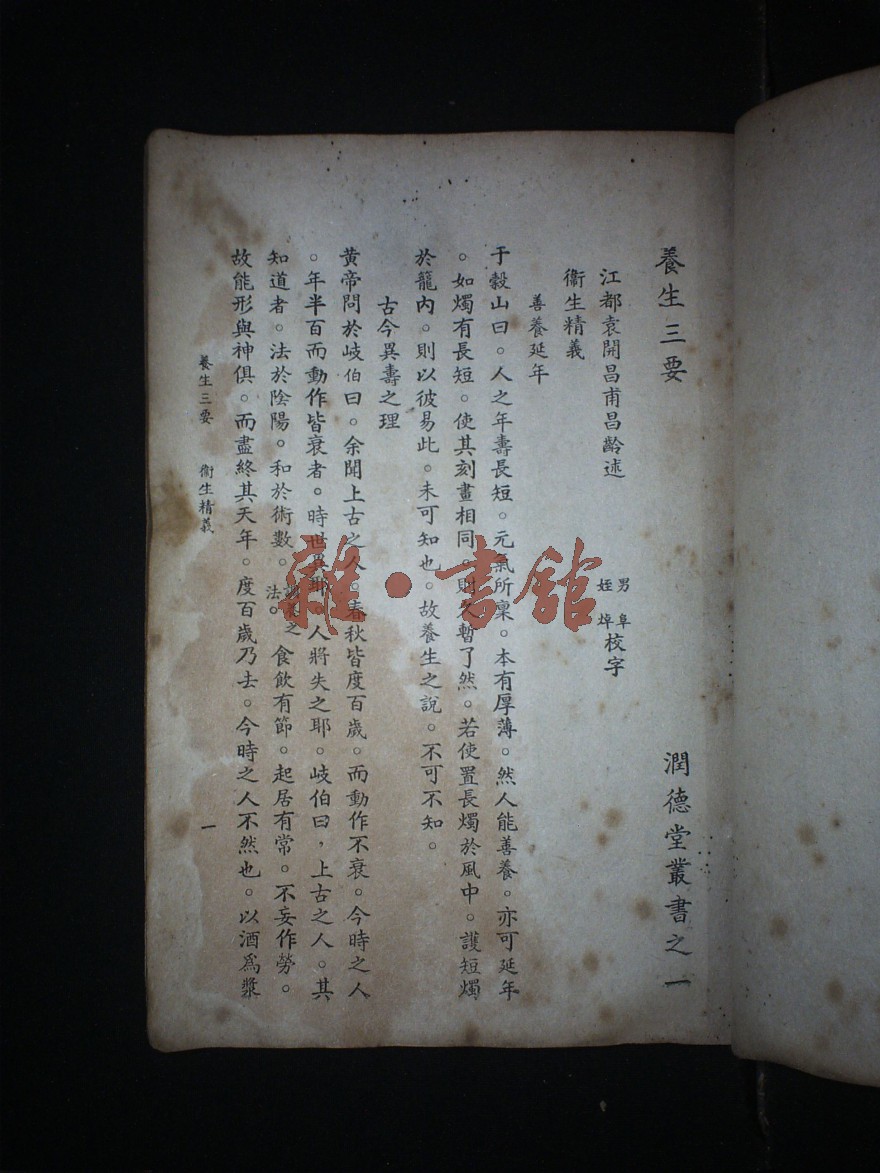 養生三要 潤德堂叢書之一
江都袁開昌甫昌齡述 男 阜 姪 埠 校字
衞生精義
善養延年
于榖山曰。人之年壽長短。元氣所稟。本有厚薄。然人能善養。亦可延年
。如燭有長短。使其刻畫相同。則久暫了然。若使置長燭於風中。護短燭
於籠內。則以彼易此。未可知也。故養生之說。不可不知。
古今異壽之理
黃帝問於岐伯曰。余聞上古之人。春秋皆度百歲。而動作不衰。今時之人
。年半百而動作皆衰者。時世異耶。人將失之耶。岐伯曰，上古之人。其
知道者。法於陰陽。和於術數。之法。食飲有節。起居有常。不妄作勞。
故能形與神俱。而盡終其天年。度百歲乃去。今時之人不然也。以酒爲漿
養生三要 衞生精義 一
雜·書館